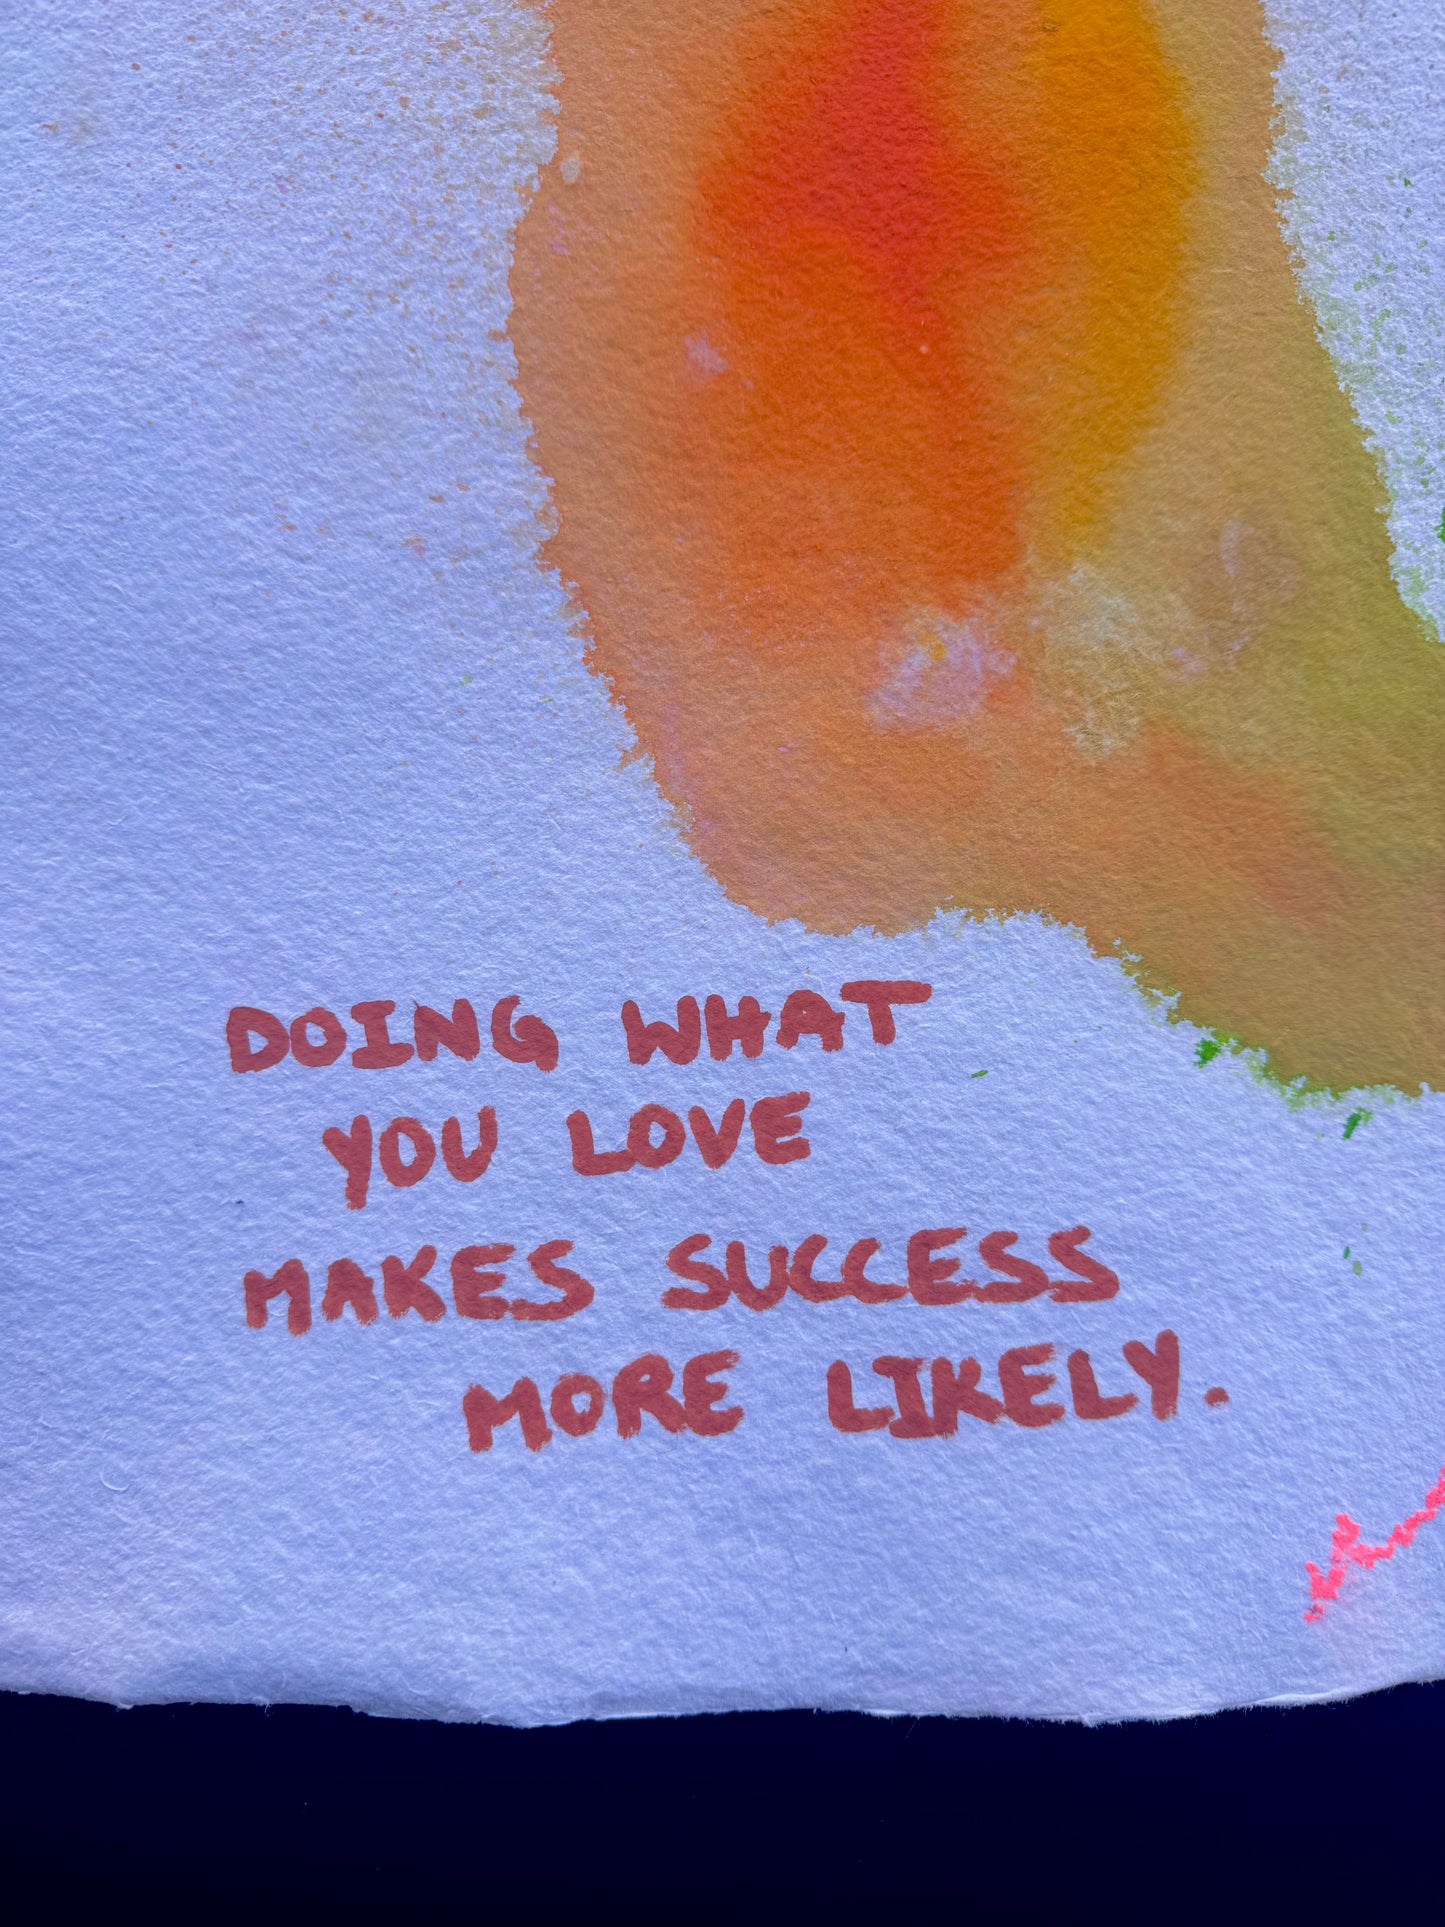 DOING WHAT
YOU LOVE
MAKES SUCCESS
MORE LIKELY.